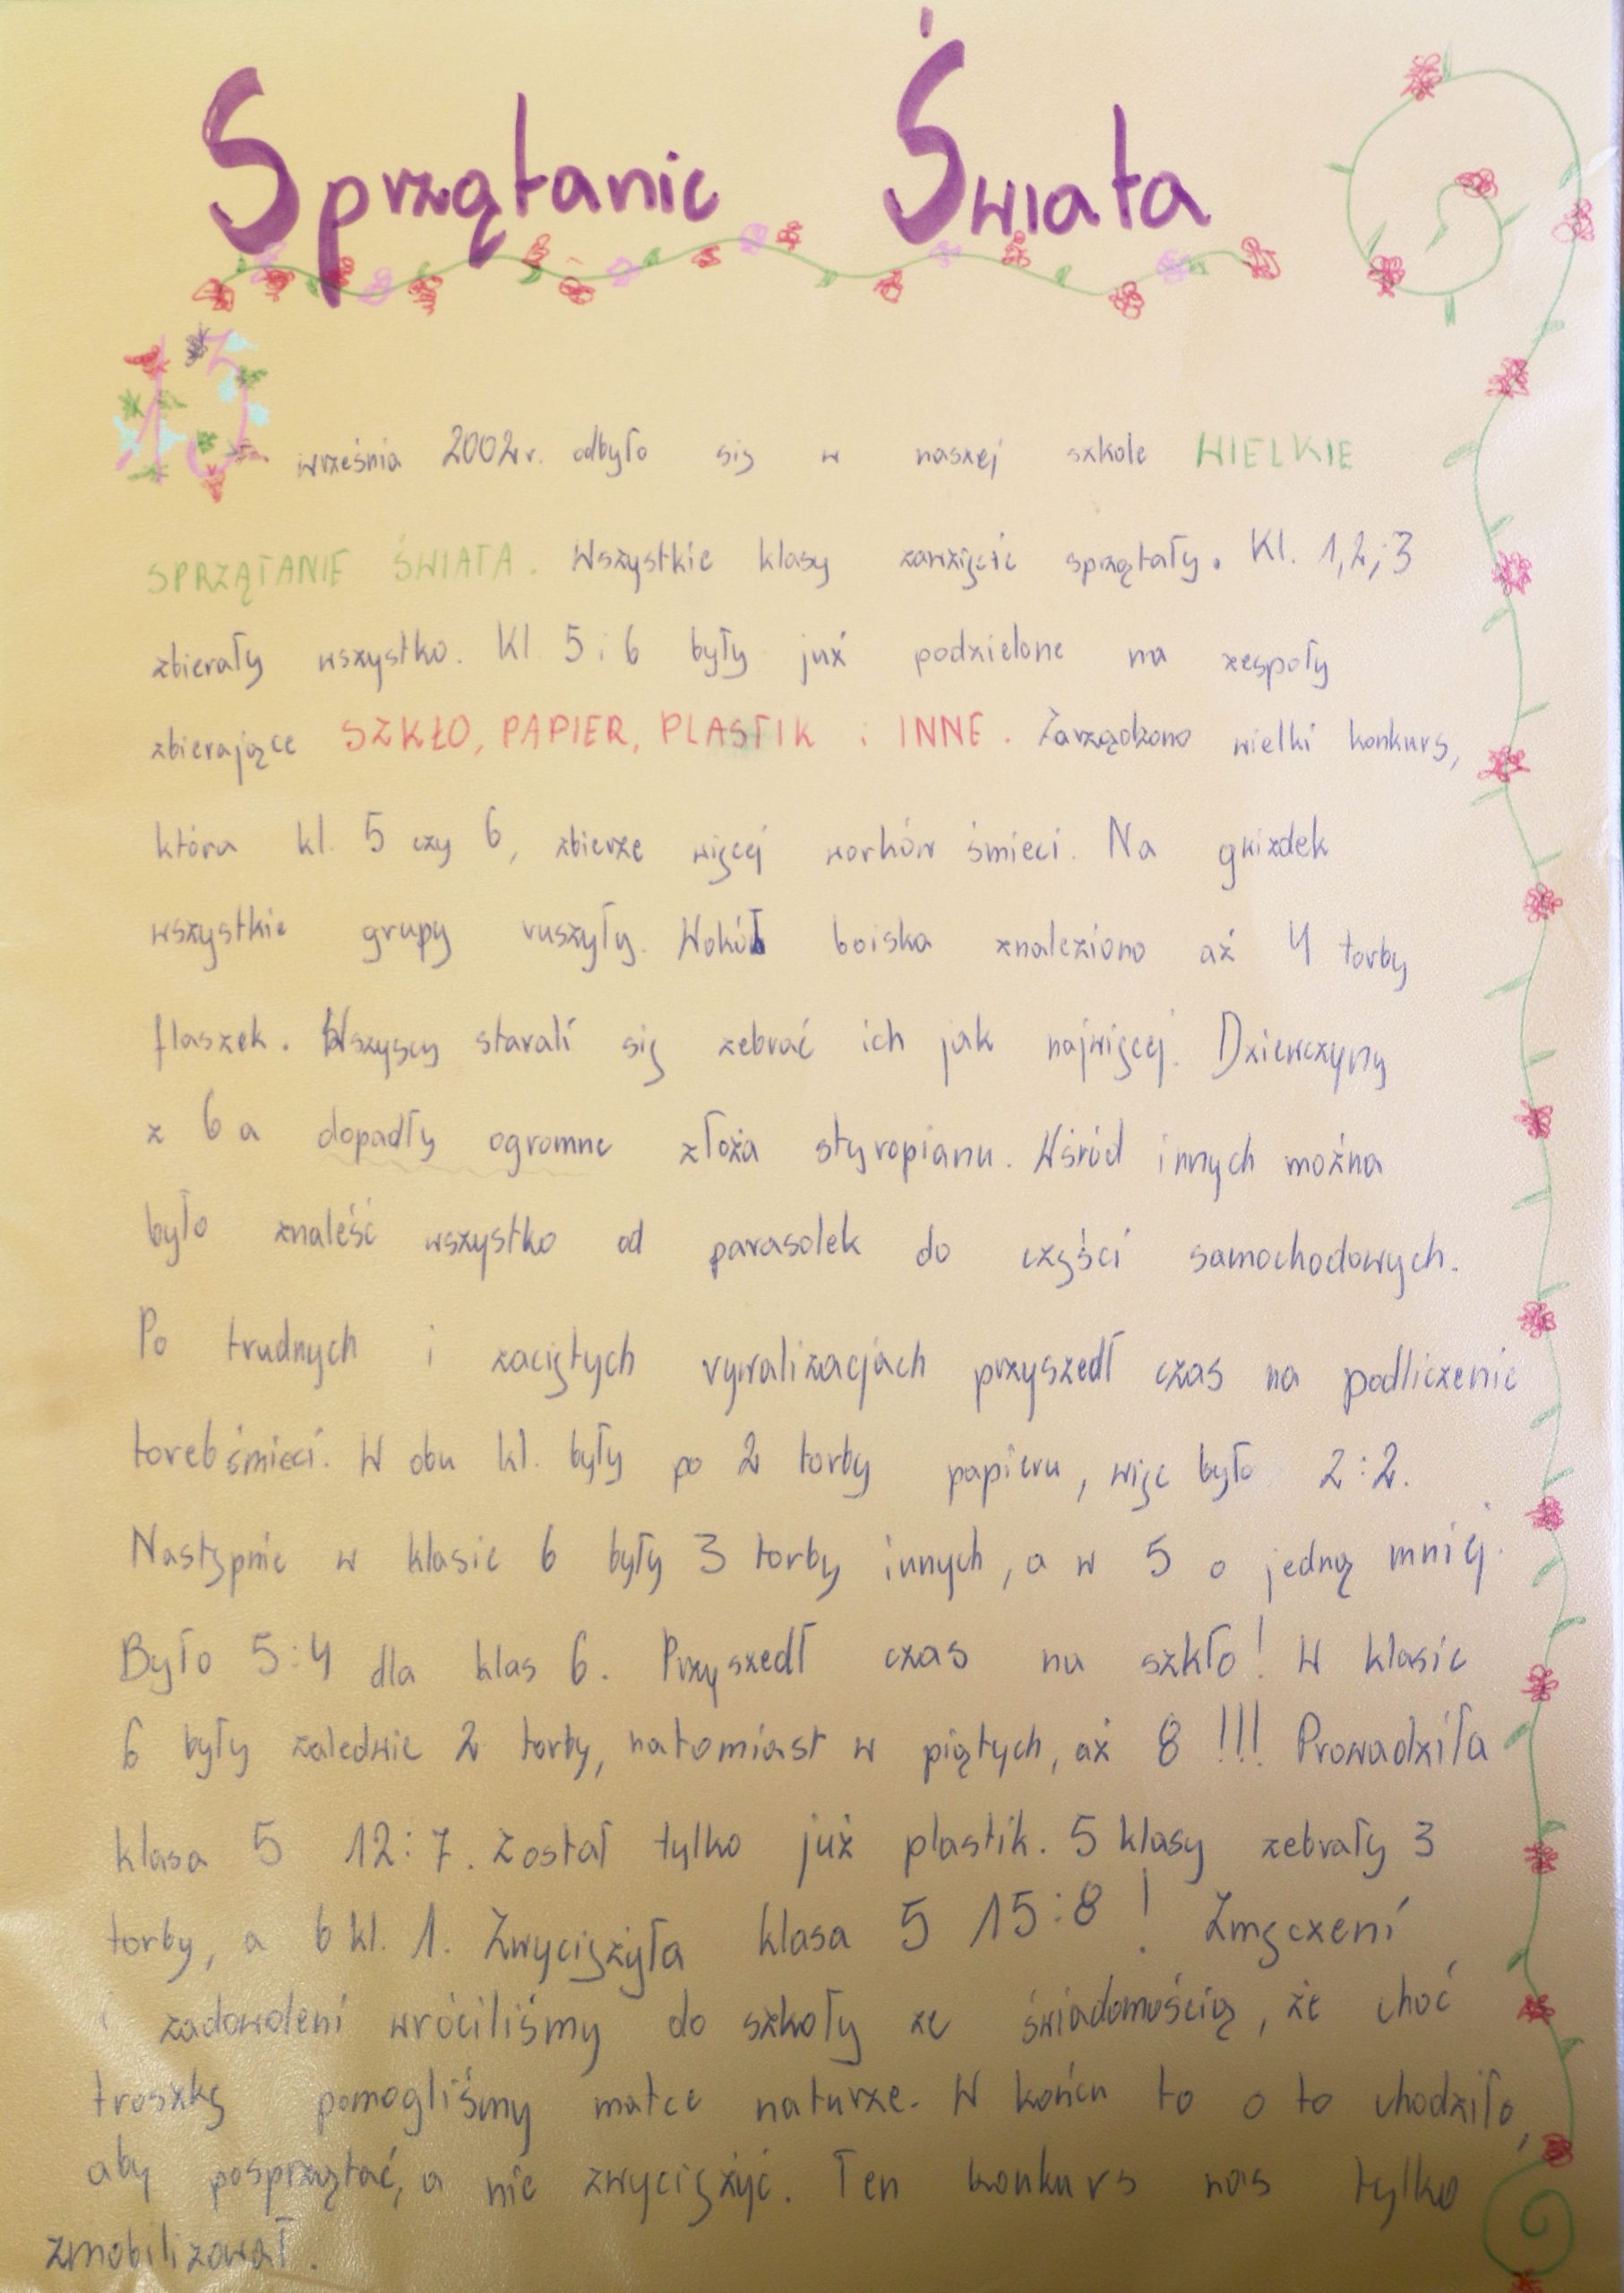 Sprzątanie Świata
13 września 2002r. odbyło się w naszej szkole WIELKIE
SPRZĄTANIE ŚWIATA. Wszystkie klasy zawzięcie sprzątały. Kl. 1,2,i3
zbierały wszystko. Kl 5 i 6 były już podzielone na zespoły
zbierające SZKŁO, PAPIER, PLASTIK i INNE. Zarządzono wielki konkurs,
która kl. 5 czy 6, zbierze więcej worków śmieci. Na gwizdek
wszystkie grupy ruszyły. Wokół boiska znaleziono aż 4 torby
flaszek. Wszyscy starali się zebrać ich jak najwięcej. Dziewczyny
z 6a dopadły ogromne złoża styropianu. Wśród innych można
było znaleść wszystko od parasolek do części samochodowych.
Po trudnych i zaciętych rywalizacjach przyszedł czas na podliczenie
toreb śmieci. W obu kl. były po 2 torby papieru, więc było 2:2.
Następnie w klasie 6 były 3 torby innych, a w 5 o jedną mniej.
Było 5:4 dla klas 6. Przyszedł czas na szkło! W klasie
6 były zaledwie 2 torby, natomiast w piątych, aż 8!!! Prowadziła
klasa 5 12:7. Został tylko już plastik. 5 klasy zebrały 3
torby, a 6 kl. 1. Zwyciężyła klasa 5 15:8! Zmęczeni
i zadowoleni wróciliśmy do szkoły ze świadomością, że choć
troszkę pomogliśmy matce naturze. W końcu to o to chodziło,
aby posprzątać, a nie zwyciężyć. Ten konkurs nas tylko
zmobilizował.